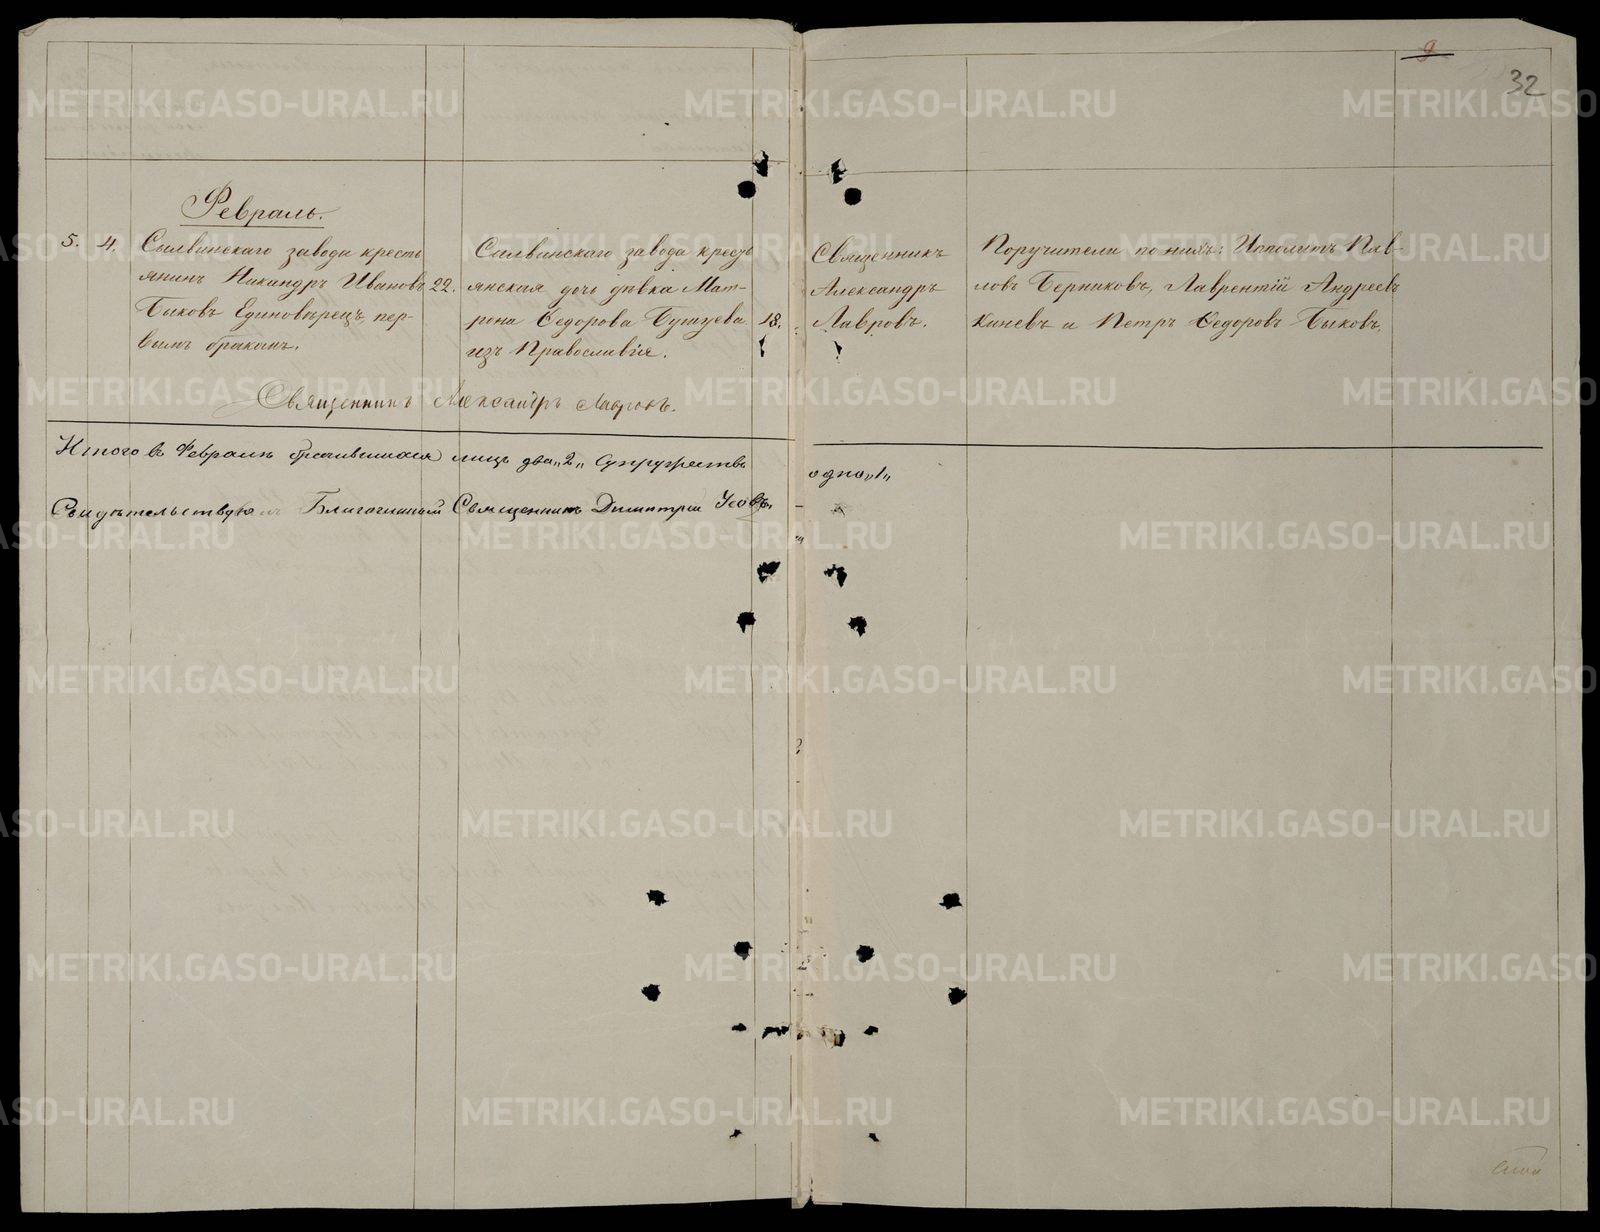 9
32
Февраль.
5. 4. Сылвинскаго завода кресть
янинъ Никандръ Ивановъ 22.
Быковъ Единоверецъ, пер-
вымъ бракомъ.
Сылвинскаго завода кресть
янская дочь дѣвка Мат-
рона Ѳедорова Бушуева 18.
изъ Православія.
Священникъ
Александръ
Лавровъ.
Поручители по нимъ: Иполитъ Пав-
ловъ Берниковъ, Лаврентій Андреевъ
Киневъ и Петръ Ѳедоровъ Быковъ.
Священникъ Александръ Лавровъ.
Итого въ Февралѣ бračившихся лицъ два „2„ супружествъ одно „1„
Свидѣтельствую Благочинный Священникъ Димитрий Усовъ
METRIKI.GASO-URAL.RU